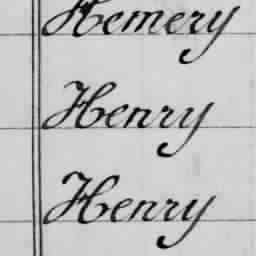 Hemery
Henry
Henry